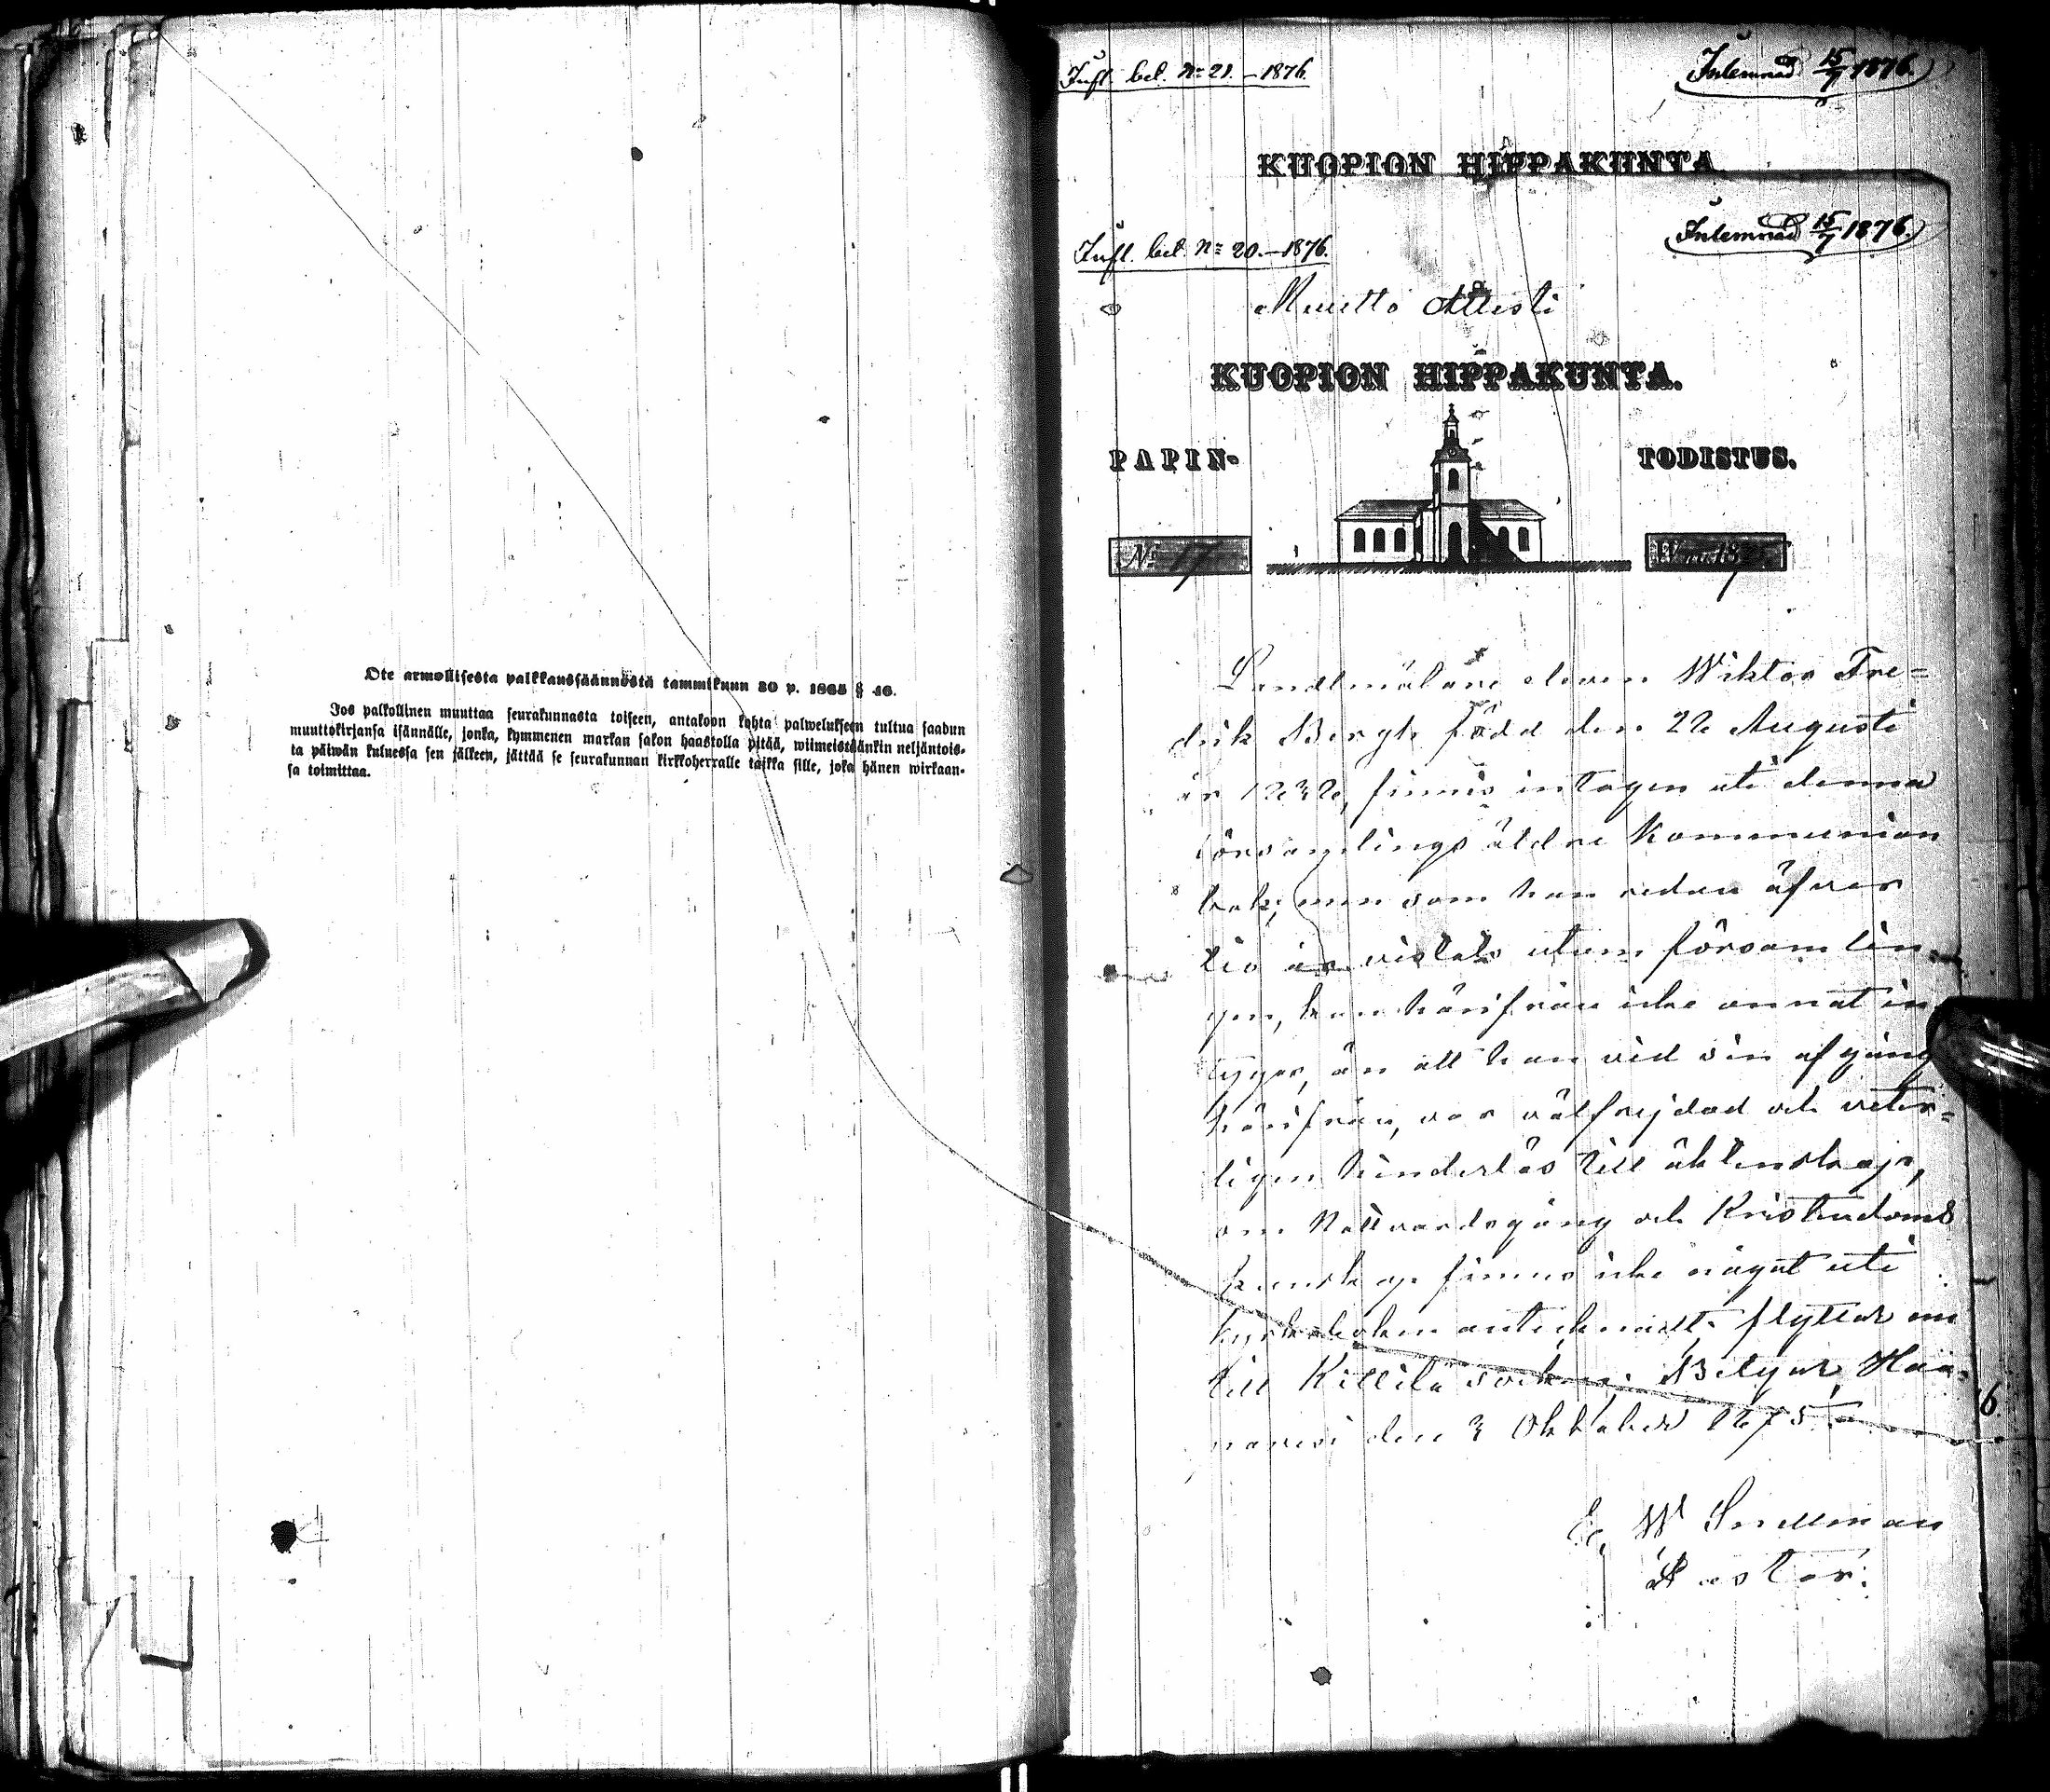 Ote armollisesta palkkaussäännöstä tammikuun 30 p. 1865 § 46.
Jos palkollinen muuttaa seurakunnasta toiseen, antakoon kohta palwelukseen tultua saadun
muuttokirjansa isännälle, jonka, kymmenen markan sakon haastolla pitää, wiimeistäänkin neljäntois-
ta päiwän kuluessa sen jälkeen, jättää se seurakunnan kirkkoherralle taikka sille, joka hänen wirkaan-
sa toimittaa.
Infl. bet. No 21.–1876.
Inlemnad 15/7 1876.
KUOPION HIPPAKUNTA.
Infl. bet. No 20.–1876.
Inlemnad 15/7 1876.
Muutto Attesti
KUOPION HIPPAKUNTA.
PAPIN-
TODISTUS.
No 17
1875
Landtmätare eleven Wiktor Fre=
drik Bergh född den 22 Augusti
år finnes intagen uti denna
församlings äldre Kommunion
bok; men som han redan öfver
tio år vistats utom församlin-
gen, kan härifrån icke annat in
tygas, än att han vid sin afgång
härifrån, var välfrejdad och veter=
ligen hinderlös till äktenskap,
om Nattvardsgång och Kristendoms
kunskap finnes icke något uti
kyrkoboken antecknadt, flyttar nu
till Kittilä socken; Betygar, Haa-
pavesi den 3 Oktober 1875.
W Snellman
Pastor.
6.